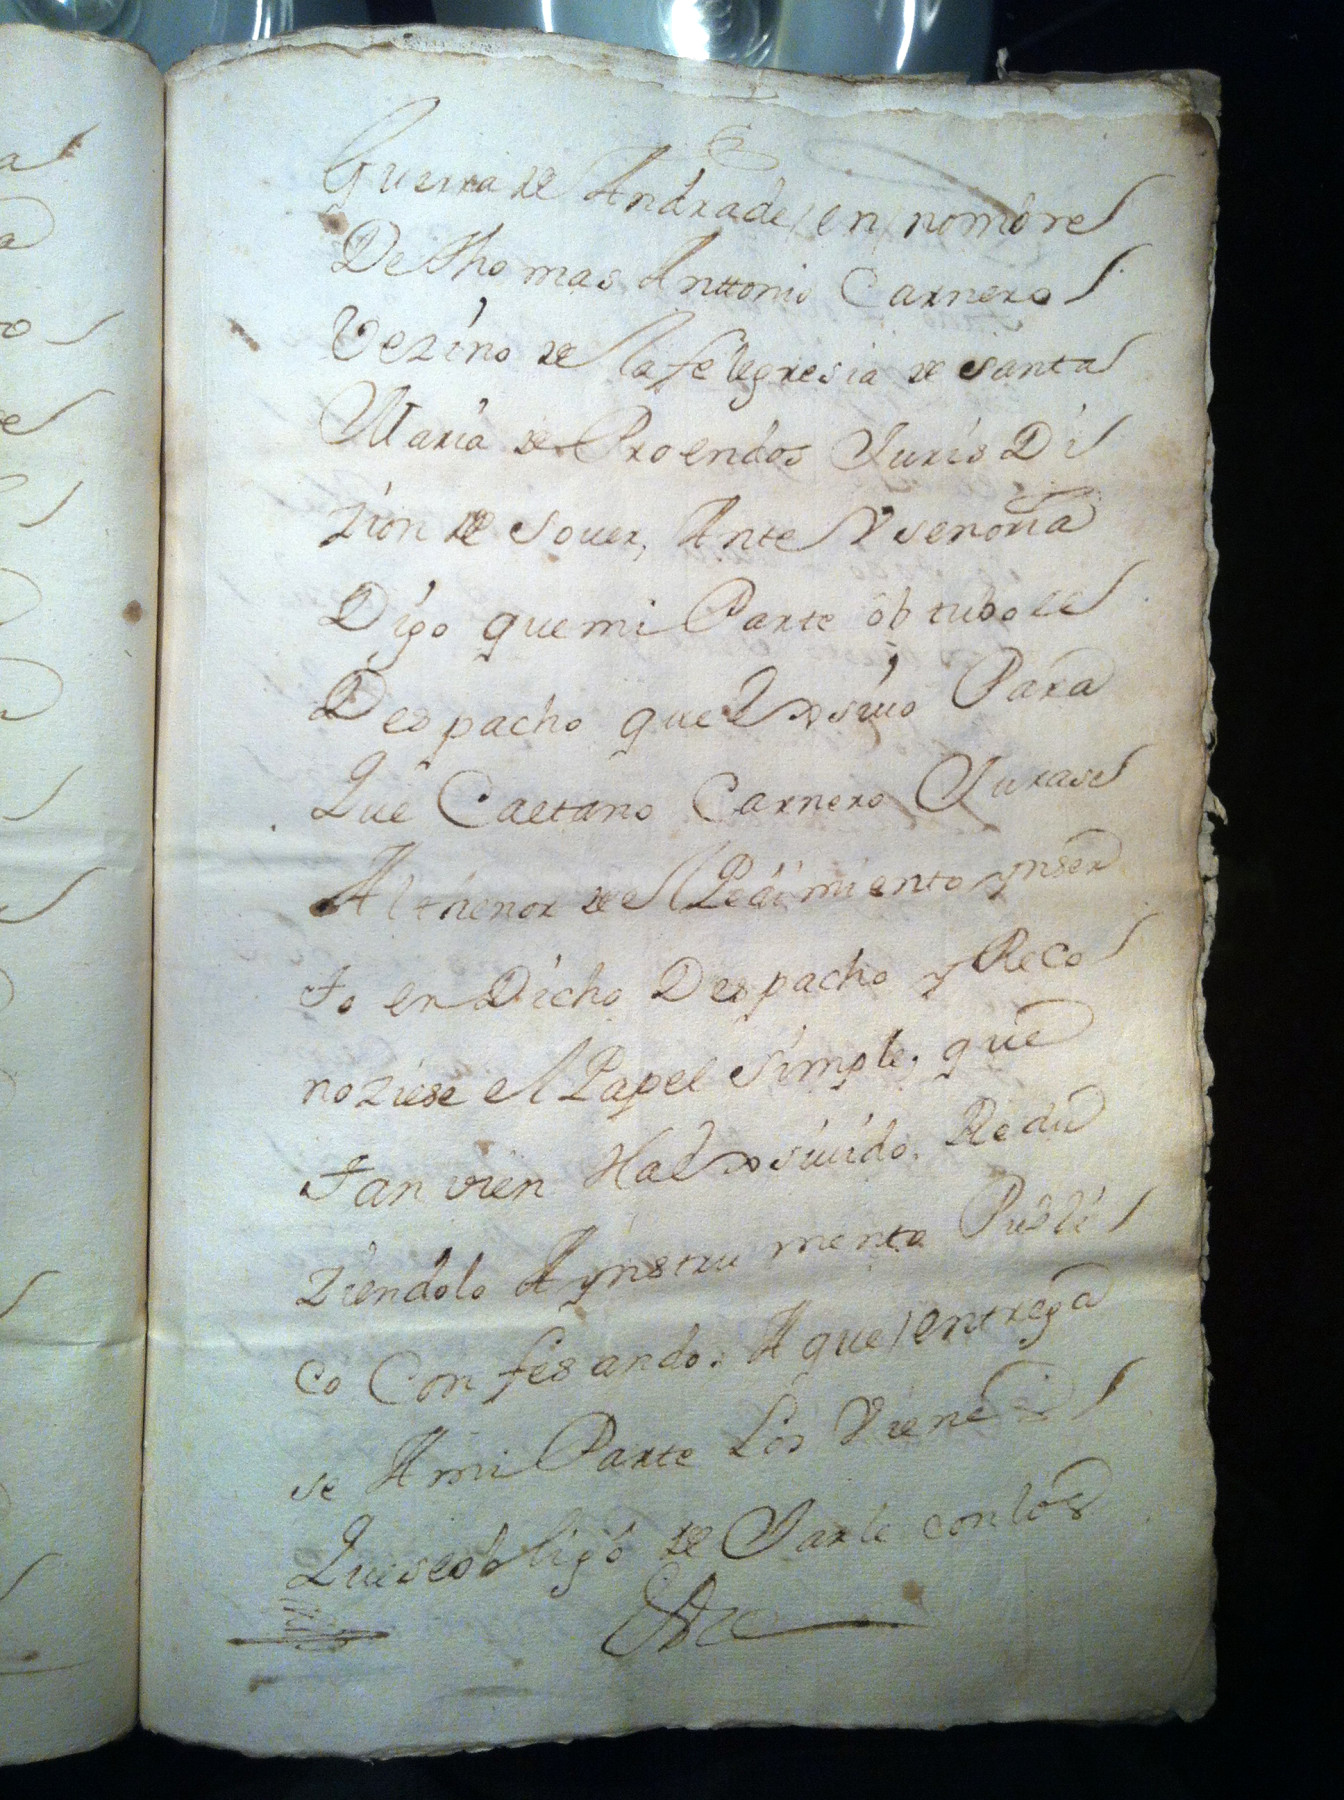 Guerra de Andrade, en nombre
De Thomas Anttonio Carnero
Vezino de la felegresia de Santa
Maria de Proendos Juris Di
zion de Sover, Ante V senoria
Digo que mi Parte obtubo el
Despacho que Exsivo Para
Que Caetano Carnero Jurase
Al thenor de el Pedimiento ynser
to en Dicho Despacho y Reco
noziese el Papel Simple, que
tanvien Ha Exsivido. Redu
ziendolo A ynstrumento Publi
co Confesando. A que entrega
se A mi Parte Los Viene
Que se obligo de Darle con los